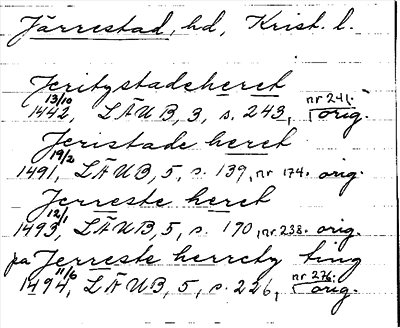 Järrestad, hd, Krist. l.
Jeritzstadeheret
13/10 1442, LÄUB, 3, s. 243, nr 241. orig.
Jeristade heret
19/2 1491, LÄUB, 5, s. 139, nr 174. orig.
Jerreste heret
12/1 1493, LÄUB, 5, s. 190, nr 238. orig.
pa Jerreste herrety ting
11/6 1494, LÄUB, 5, s. 226, nr 276. orig.